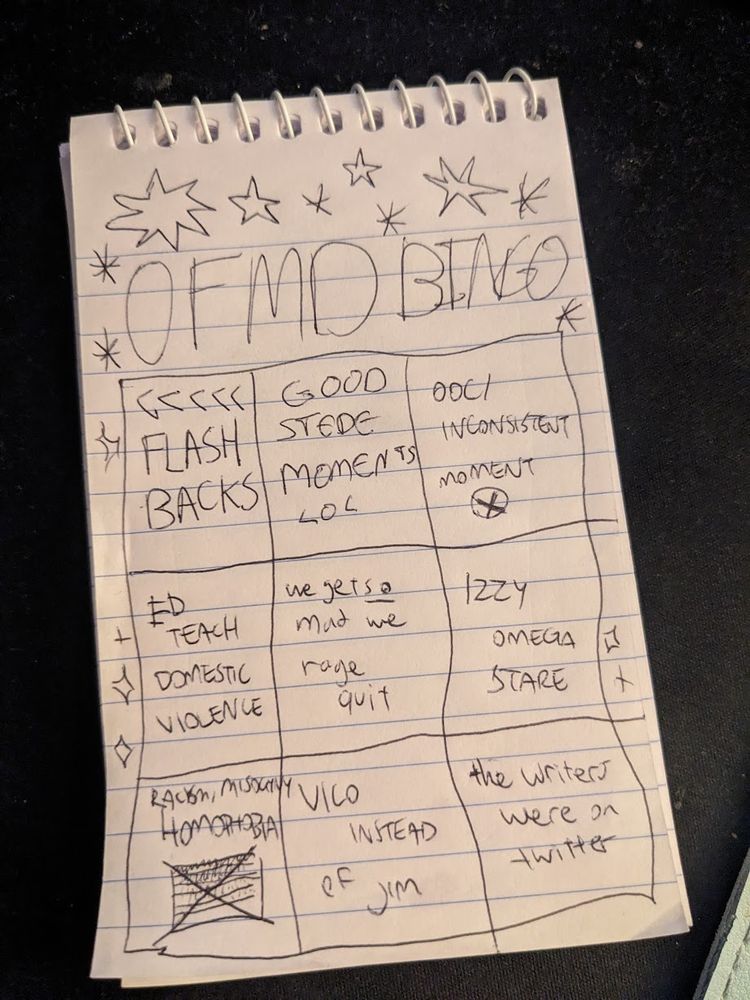 OFMD BINGO
<<<<<
FLASH
BACKS
GOOD
STEDE
MOMENTS
LOL
OOC/
INCONSISTENT
MOMENT
ED
TEACH
DOMESTIC
VIOLENCE
we get so
mad we
rage
quit
IZZY
OMEGA
STARE
RACISM, MISOGYNY
HOMOPHOBIA
VICO
INSTEAD
OF
JIM
the writers
were on
twitter